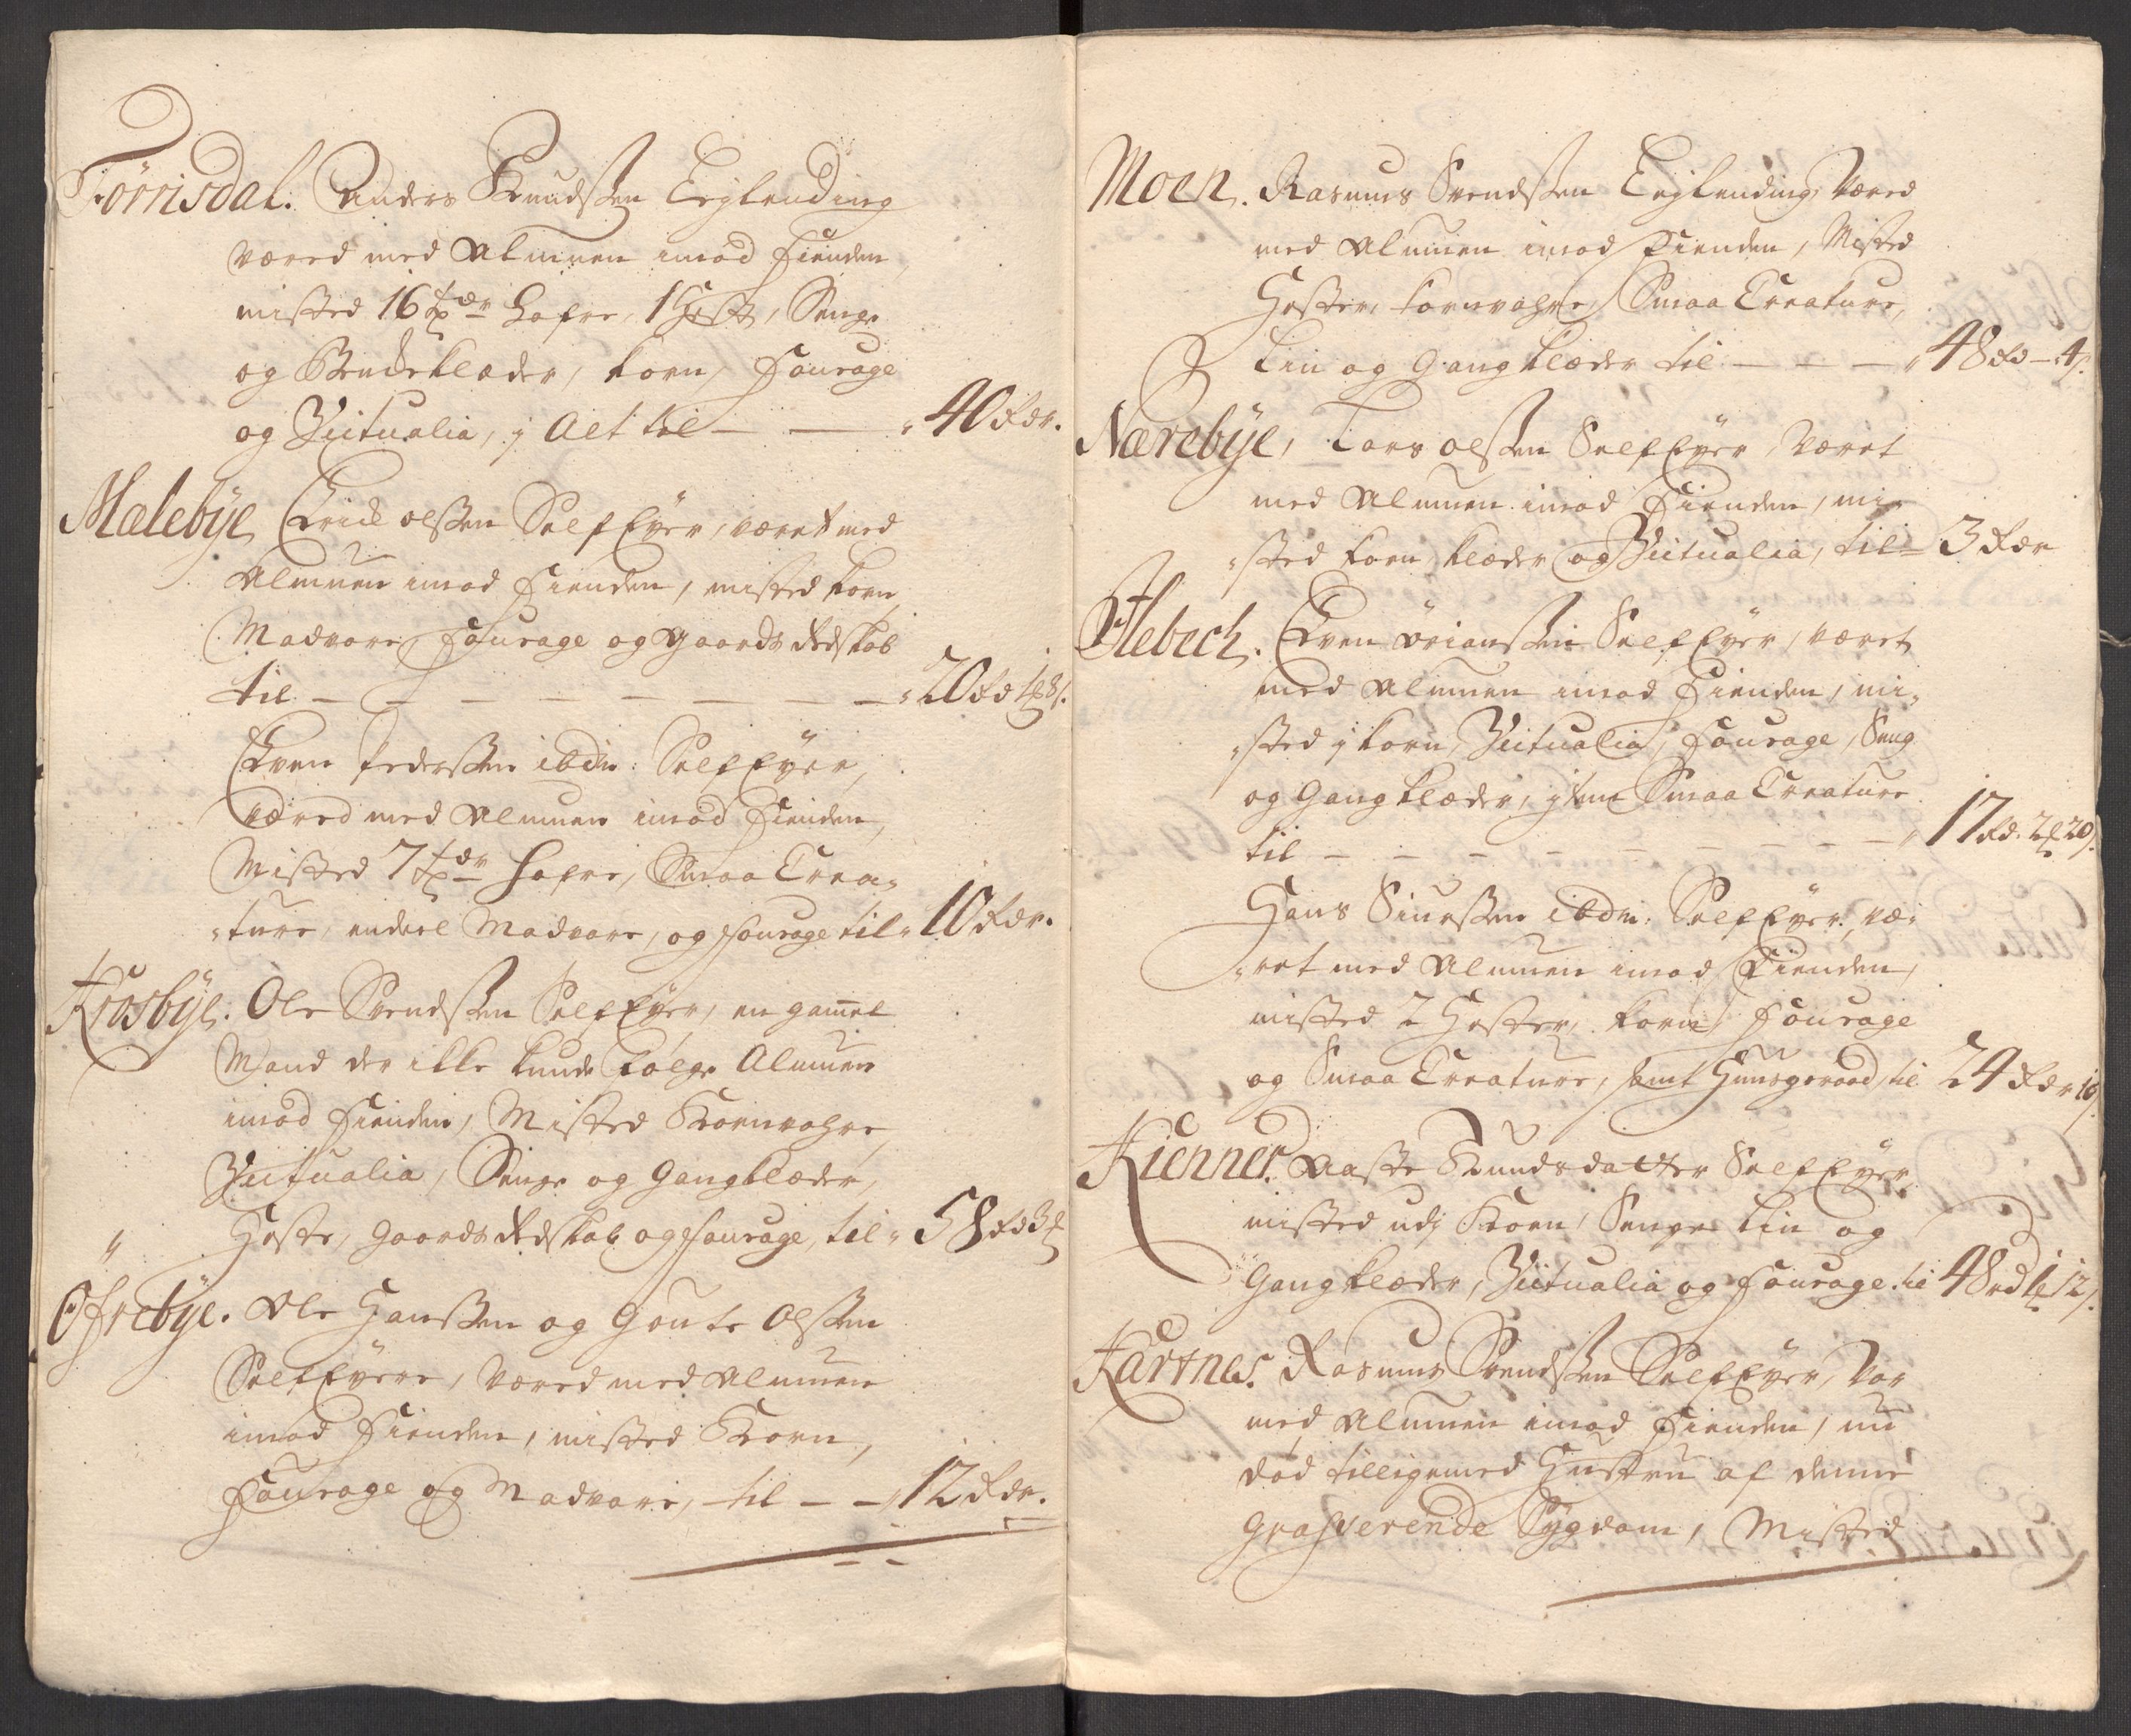 Törrisdal. Anders Knudssen Leylending
været med Almuen imod Fienden,
misted 16 tdr Hafre, 1 Hest, Senge
og Benckeklæder, korn, Fourage
og Victualia, j Alt til — — 40 rdr.
Malebÿe, Erick olssen Self Eÿer, været med
Almuen imod Fienden, misted korn,
Madvare, Fourage og Gaards Redskab
til — — — — — — 20 rd 1 8 s.
Even Pederssen ibdm: Self Eÿer,
været med Almuen imod Fienden,
Misted 7 tdr Hafre, Smaa Crea-
ture, andeel Madvare, og Fourage til 10 rdr.
Krosbÿe. Ole Svendssen Self Eÿer, en gamel
Mand der ikke kunde følge Almuen
imod Fienden, Misted Kornvahre,
Victualia, Senge og Gangklæder,
Heste, Gaards Redskab og Fourage, til 58 rd 3
Öfrebÿe. Ole Hanssen og Goute Olssen
Self Eÿere, været med Almuen
imod Fienden, misted Korn,
Fourage og Madvare, til — — 12 rdr.
Moen. Rasmus Svendssen Leylending, været
med Almuen imod Fienden, Misted
Hester, kornvahre, Smaa Creature,
Lin og Gangklæder til — — — 48 rd — 4 s.
Nærebÿe, Lars olssen Self Eÿer, været
med Almuen imod Fienden, mi-
sted korn, klæder og Victualia, til 3 rdr
Flebech. Even örianssen Self Eÿer, været
med Almuen imod Fienden, mi-
sted j korn, Victualia, Fourage, Seng
og Gangklæder, jtem Smaa Creature
til — — — — — — — — 17 rd. 2 20 s.
Hans Siurssen ibdm: Self Eÿer, væ-
ret med Almuen imod Fienden,
misted 2 Hester, korn, Fourage
og Smaa Creature, samt Huusgeraad, til 24 rdr 16 s.
Kienner. Aaste Knudsdatter Self Eÿer,
misted udj Korn, Senge Lin og
Gangklæder, Victualia og Fourage til 48 rd 1 12 s.
Kartnes. Rasmus Svendssen Self Eÿer, var
med Almuen imod Fienden, nu
død tilligemed Hustru af denne
grahserende Sygdom, Misted